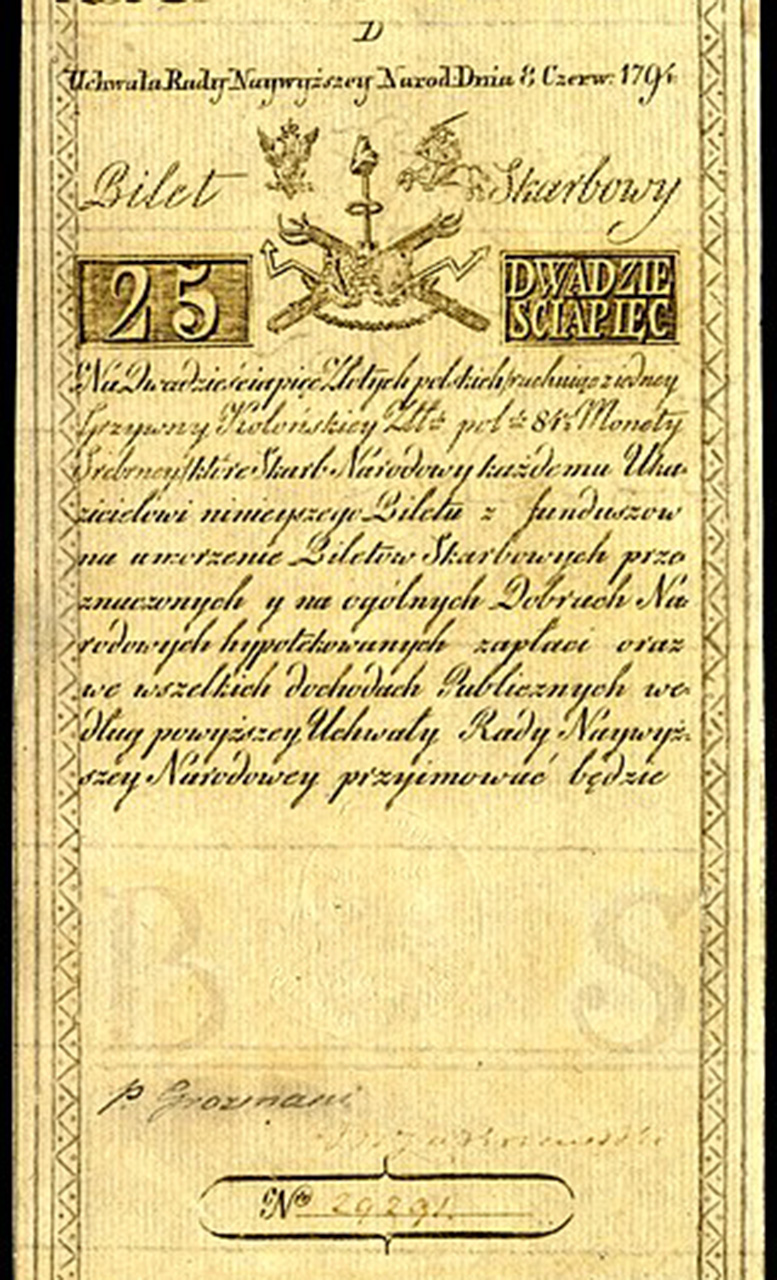 D
Uchwała Rady Naywyższey Narod: Dnia 8 Czerw: 1794
Bilet Skarbowy
25
DWADZIE
ŚCIAPIĘC
Na Dwadzieściapięć Złotych polskich rachuiąc z iedney
Grzywny Kolońskiey Złt: pol: 84½ Monety
Srebrney) które Skarb Narodowy każdemu Uka-
zicielowi ninieyszego Biletu z funduszow
na umorzenie Biletów Skarbowych prze-
znaczonych y na ogólnych Dobrach Na-
rodowych hypotekowanych zapłaci oraz
we wszelkich dochodach Publicznych we-
dług powyższey Uchwały Rady Naywyż-
szey Narodowey przyimować będzie
B S
P. Grozmani
No 29291.